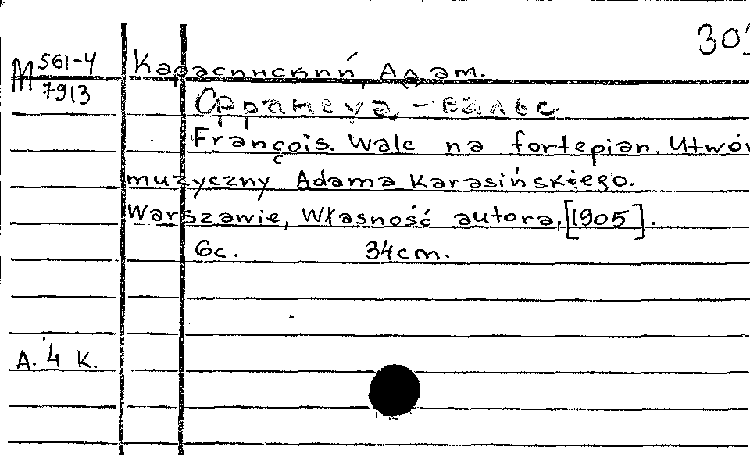 303
М 561-4
7913
Карасиньский, Адам.
Франсуа - вальс
François. Walc na fortepian. Utwór
muzyczny Adama Karasińskiego.
Warszawie, Własność autora, [1905].
6с. 34cm.
А. 4 К.